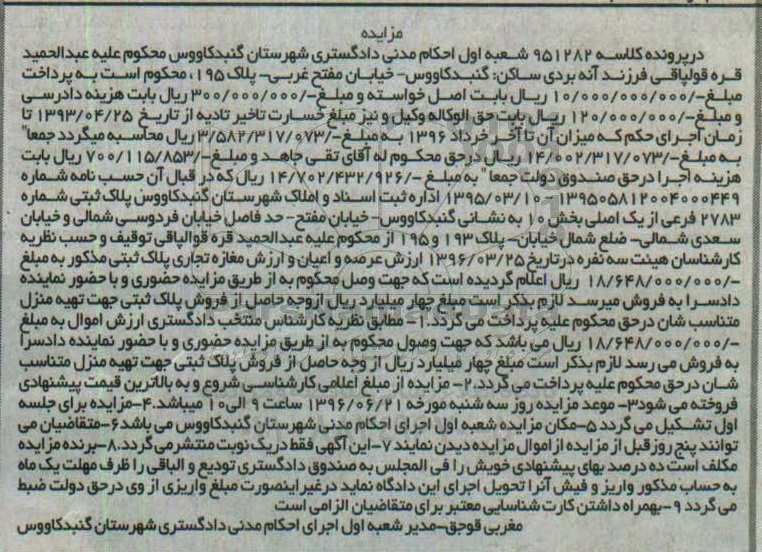 مزایده
درپرونده کلاسه ۹۵۱۲۸۲ شعبه اول احکام مدنی دادگستری شهرستان گنبدکاووس محکوم علیه عبدالحمید
قره قولیاقی فرزند آنه بردی ساکن: گنبدکاووس- خیابان مفتح غربی- پلاک ۱۹۵، محکوم است به پرداخت
مبلغ-/۱۰/۰۰۰/۰۰۰/۰۰۰ ریال بابت اصل خواسته و مبلغ-/۳۰۰/۰۰۰/۰۰۰ ریال بابت هزینه دادرسی
و مبلغ-/۱۲۰/۰۰۰/۰۰۰ ریال بابت حق الوکاله وکیل و نیز مبلغ خسارت تاخیر تادیه از تاریخ ۱۳۹۳/۰۴/۲۵ تا
زمان اجرای حکم که میزان آن تا آخر خرداد ۱۳۹۶ به مبلغ-/۳/۵۸۲/۳۱۷/۰۷۳ ریال محاسبه میگردد جمعا"
به مبلغ-/۱۴/۰۰۲/۳۱۷/۰۷۳ ریال درحق محکوم له آقای تقی جاهد و مبلغ-/۷۰۰/۱۱۵/۸۵۳ ریال بابت
هزینه اجرا درحق صندوق دولت جمعا" به مبلغ -/۱۴/۷۰۲/۴۳۲/۹۲۶ ریال که در قبال آن حسب نامه شماره
۱۳۹۵۰۵۸۱۲۰۰۴۰۰۰۴۴۹- ۱۳۹۵/۰۳/۱۰ اداره ثبت اسناد و املاک شهرستان گنبدکاووس پلاک ثبتی شماره
۲۷۸۳ فرعی از یک اصلی بخش ۱۰ به نشانی گنبدکاووس- خیابان مفتح- حد فاصل خیابان فردوسی شمالی و خیابان
سعدی شمالی- ضلع شمال خیابان- پلاک ۱۹۳ و ۱۹۵ از محکوم علیه عبدالحمید قره قوالپاقی توقیف و حسب نظریه
کارشناسان هیئت سه نفره درتاریخ ۱۳۹۶/۰۳/۲۵ ارزش عرصه و اعیان و ارزش مغازه تجاری پلاک ثبتی مذکور به مبلغ
-/۱۸/۶۴۸/۰۰۰/۰۰۰ ریال اعلام گردیده است که جهت وصل محکوم به از طریق مزایده حضوری و با حضور نماینده
دادسرا به فروش میرسد لازم بذکر است مبلغ چهار میلیارد ریال ازوجه حاصل از فروش پلاک ثبتی جهت تهیه منزل
متناسب شان درحق محکوم علیه پرداخت می گردد.۱- مطابق نظریه کارشناس منتخب دادگستری ارزش اموال به مبلغ
-/۱۸/۶۴۸/۰۰۰/۰۰۰ ریال می باشد که جهت وصول محکوم به از طریق مزایده حضوری و با حضور نماینده دادسرا
به فروش می رسد لازم بذکر است مبلغ چهار میلیارد ریال از وجه حاصل از فروش پلاک ثبتی جهت تهیه منزل متناسب
شان درحق محکوم علیه پرداخت می گردد.۲- مزایده از مبلغ اعلامی کارشناسی شروع و به بالاترین قیمت پیشنهادی
فروخته می شود۳- موعد مزایده روز سه شنبه مورخه ۱۳۹۶/۰۶/۲۱ ساعت ۹ الی۱۰ میباشد.۴-مزایده برای جلسه
اول تشکیل می گردد ۵-مکان مزایده شعبه اول اجرای احکام مدنی شهرستان گنبدکاووس می باشد۶-متقاضیان می
توانند پنج روز قبل از مزایده از اموال مزایده دیدن نمایند ۷-این آگهی فقط دریک نوبت منتشرمی گردد.۸-برنده مزایده
مکلف است ده درصد بهای پیشنهادی خویش را فی المجلس به صندوق دادگستری تودیع و الباقی را ظرف مهلت یک ماه
به حساب مذکور واریز و فیش آنرا تحویل اجرای این دادگاه نماید درغیر اینصورت مبلغ واریزی از وی درحق دولت ضبط
می گردد ۹-بهمراه داشتن کارت شناسایی معتبر برای متقاضیان الزامی است
مغربی قوجق-مدیر شعبه اول اجرای احکام مدنی دادگستری شهرستان گنبدکاووس